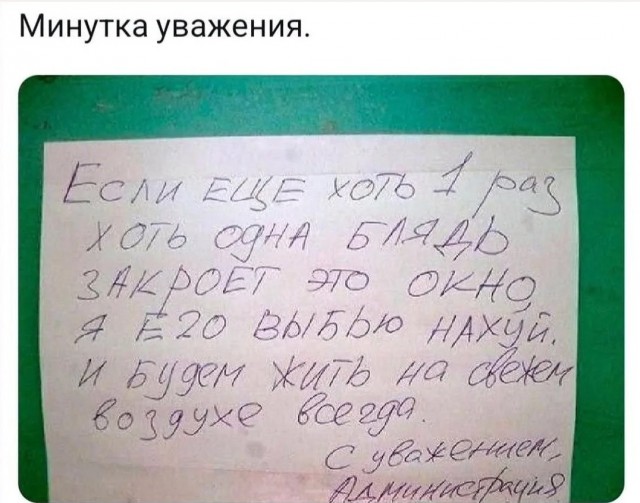 Минутка уважения.
ЕСЛИ ЕЩЕ ХОТЬ 1 раз
ХОТЬ ОДНА БЛЯДЬ
ЗАКРОЕТ ЭТО ОКНО,
Я ЕГО ВЫБЬЮ НАХУЙ.
И будем ЖИТЬ на свежем
воздухе всегда.
С уважением,
Администрация